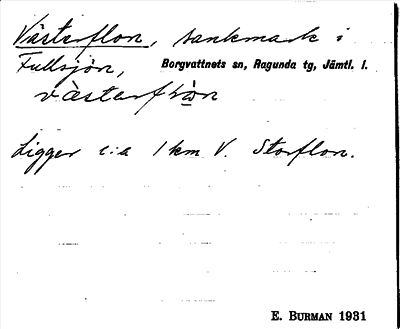 Västerflon, sankmark i
Fullsjön, Borgvattnets sn, Ragunda tg, Jämtl. l.
Ligger c:a 1 km V. Storflon.
E. BURMAN 1931